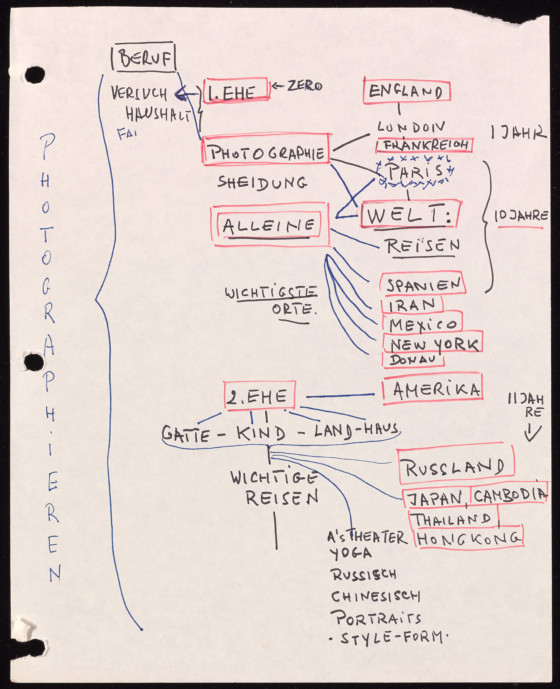 BERUF
VERSUCH
HAUSHALT
FAI
1.EHE
← ZERO
ENGLAND
LONDON
1 JAHR
FRANKREICH
PHOTOGRAPHIE
PARIS
SHEIDUNG
WELT:
10 JAHRE
ALLEINE
REISEN
SPANIEN
WICHTIGSTE
ORTE.
IRAN
MEXICO
NEW YORK
DONAU
2.EHE
AMERIKA
11 JAH
RE
GATTE - KIND - LAND-HAUS
RUSSLAND
WICHTIGE
REISEN
JAPAN CAMBODIA
THAILAND
HONGKONG
A's THEATER
YOGA
RUSSISCH
CHINESISCH
PORTRAITS
· STYLE-FORM ·
PHOTOGRAPHIEREN